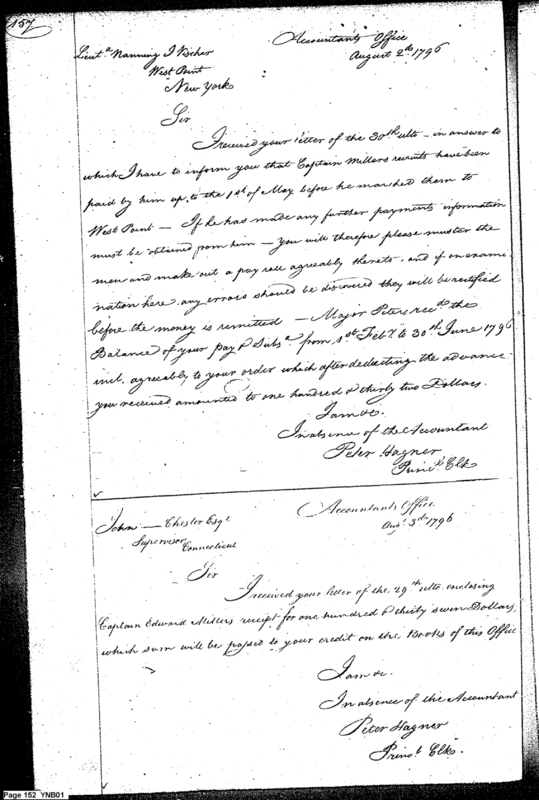 157
Accountants Office
August 2d. 1796
Lieut. Nanning J Vischer
West Point
New York
Sir
I received your letter of the 30th ulto - in answer to
which I have to inform you that Captain Millers recruits have been
paid by him up to the 1st of May before he marched them to
West Point - If he has made any further payments information
must be obtained from him - you will therefore please muster the
men and make out a pay roll agreeably thereto, and if on exami-
nation here any errors should be discovered they will be rectified
before the money is remitted - Major Peters recd. the
Balance of your pay & Subs. from 1st Feby. to 30th June 1796
incl. agreeably to your order which after deducting the advance
you received amounted to one hundred & thirty two Dollars.
I am &c.
In absence of the Accountant
Peter Hagner
Prinl. Clk
Accountants Office
Augt. 3d 1796
John - Chester Esqr.
Supervisor
Connecticut
Sir
I received your letter of the 29th ulto. enclosing
Captain Edward Millers receipt for one hundred & thirty seven Dollars,
which sum will be passed to your credit on the Books of this Office
I am &c.
In absence of the Accountant
Peter Hagner
Prinl. Clk.
Page 152 YNB01